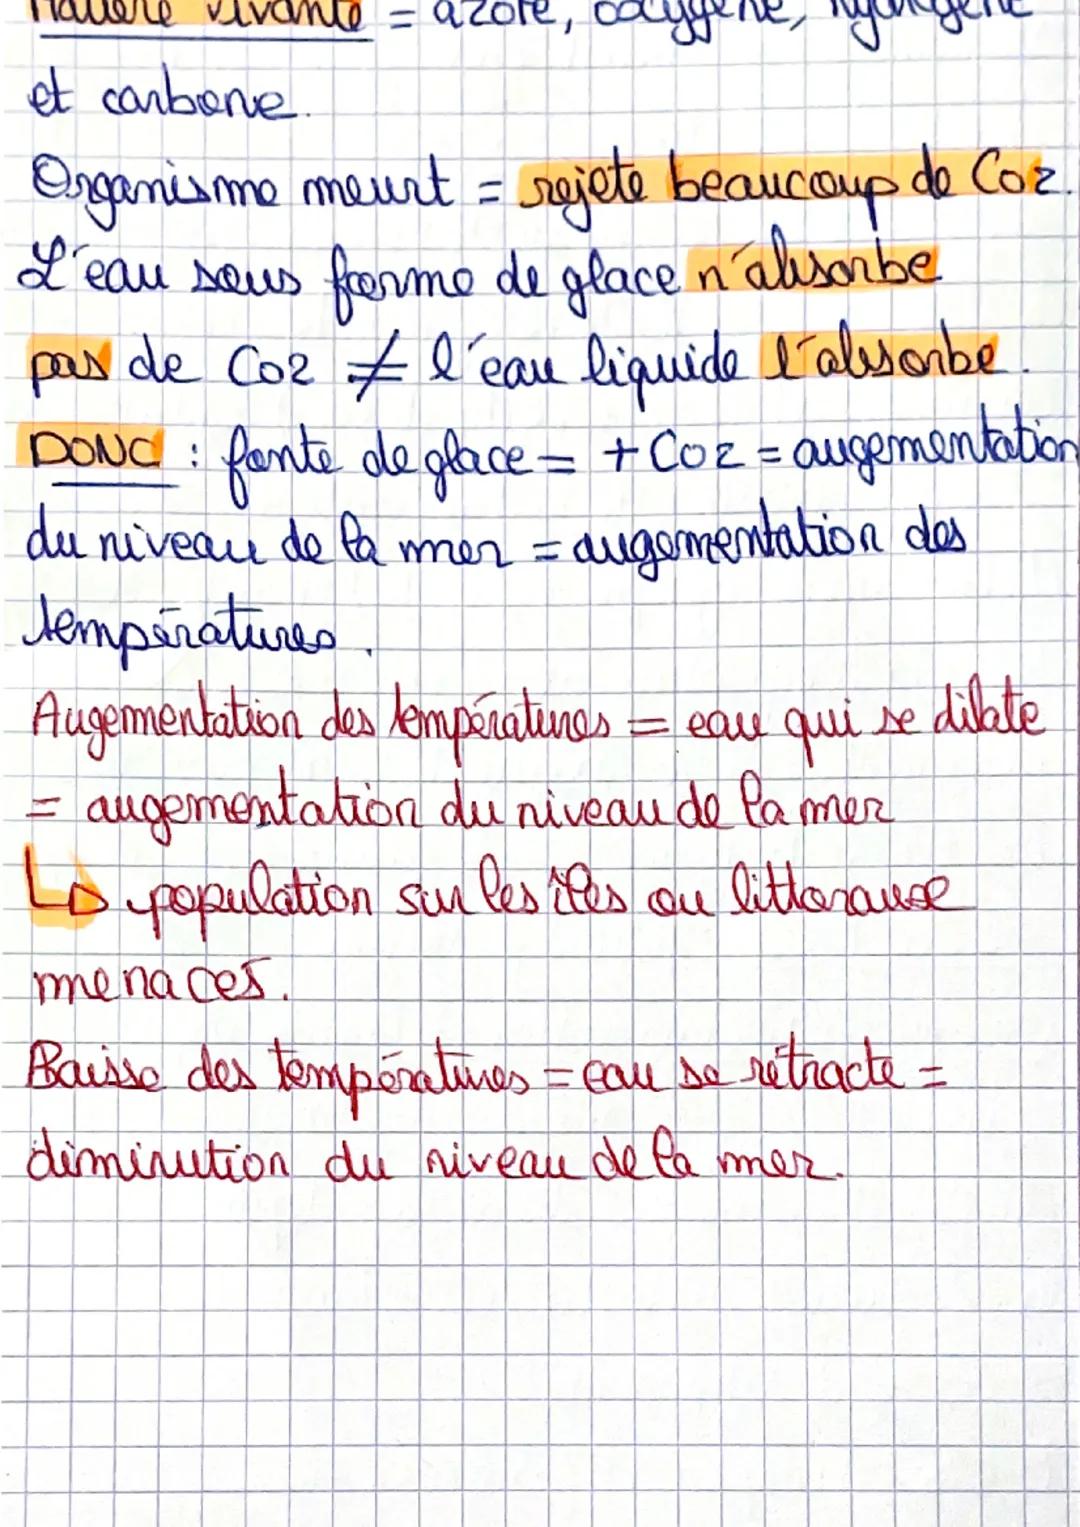 Matière vivante = azote, oxygène, hydrogène
et carbone.
Organisme meurt = rejete beaucoup de Co2.
L'eau sous forme de glace n'absorbe
pas de Co2 ≠ l'eau liquide l'absorbe.
DONC : fonte de glace = + Co2 = augementation
du niveau de la mer = augementation des
températures.
Augementation des températures = eau qui se dilate
= augementation du niveau de la mer
↳ population sur les îles ou littoraux
menacés.
Baisse des températures = eau se rétracte =
diminution du niveau de la mer.